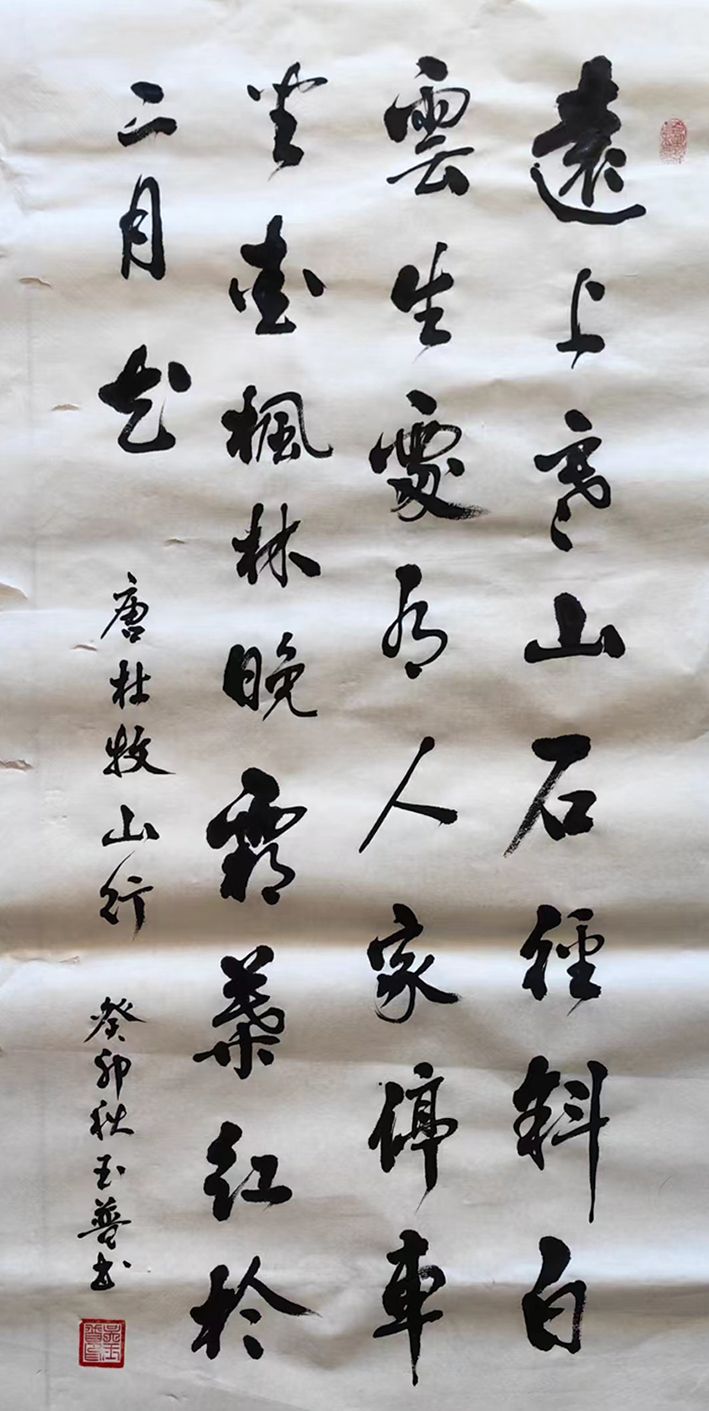 遠上寒山石徑斜白
雲生處有人家停車
坐愛楓林晚霜葉紅於
二月花
唐杜牧山行
癸卯秋玉普书